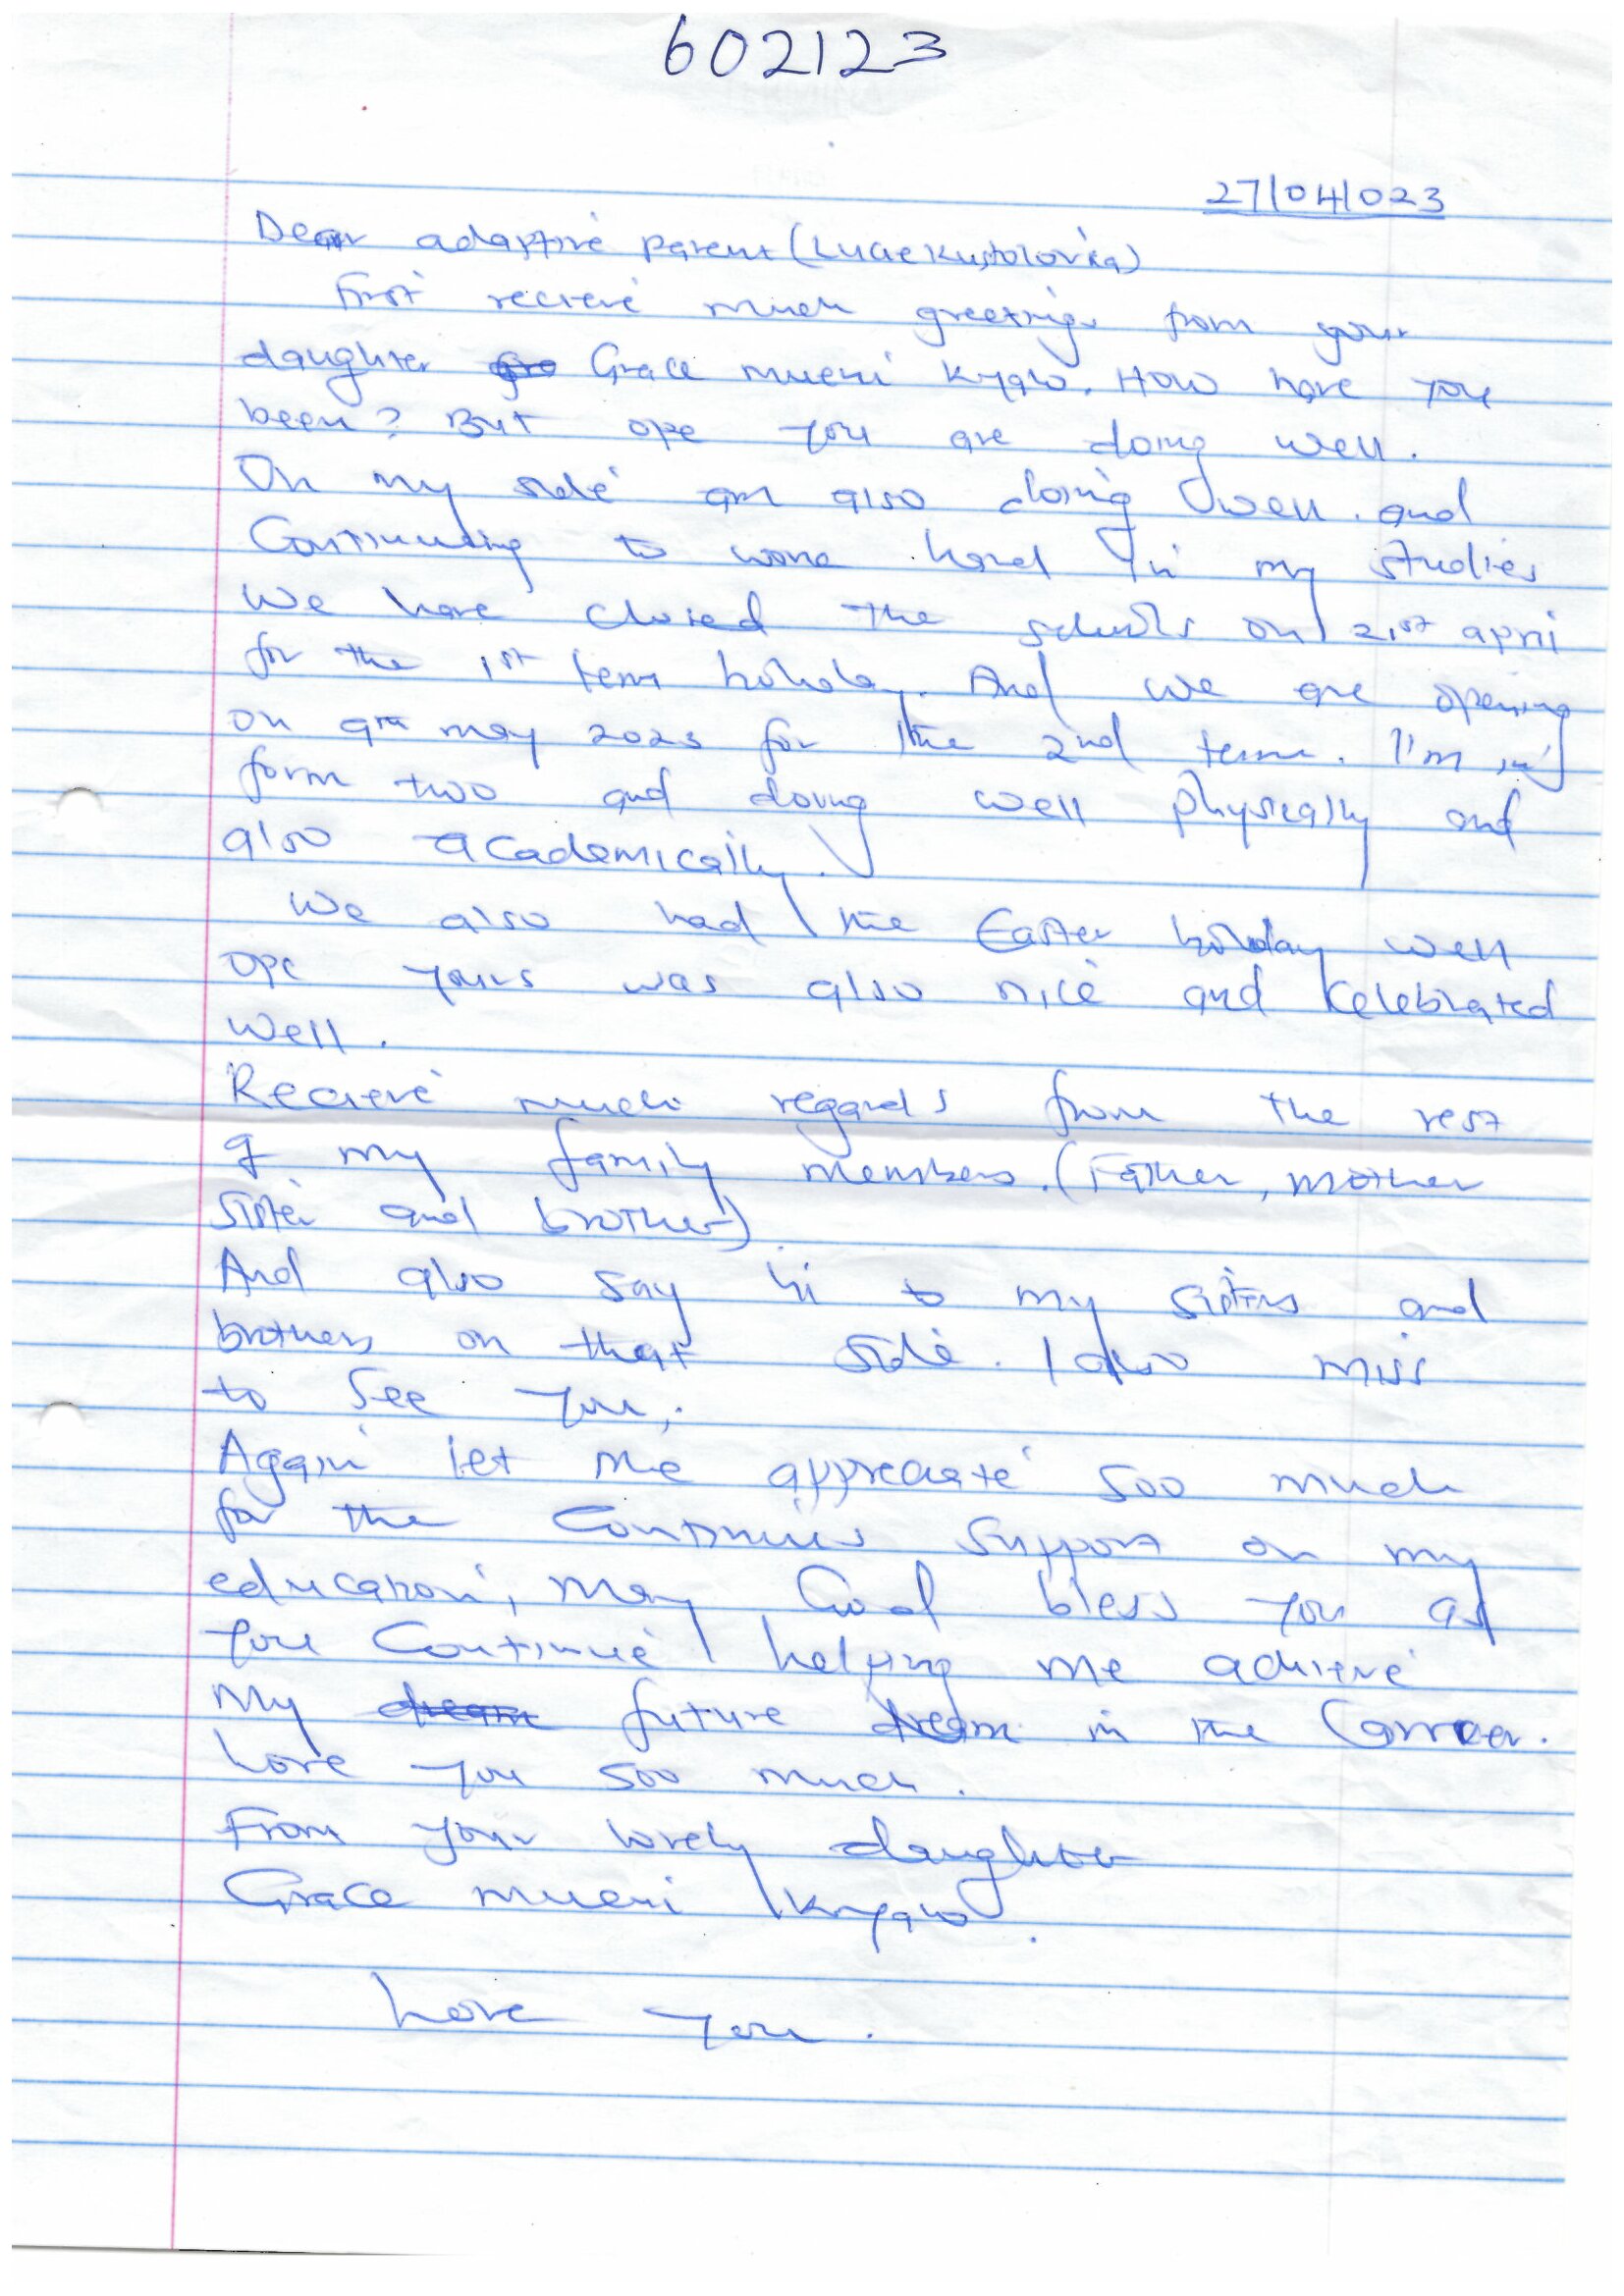 602123
27/04/023
Dear adaptive parent (Lucie Kustolovka)
First recieve much greetings from your
daughter Grace mueni Kyalo. How have you
been? But ope you are doing well.
On my side am also doing well. and
Continueing to work hard in my studies
We have closed the schools on 21st april
for the 1st term holiday. And we are opening
on 9th may 2023 for the 2nd term. I'm in
form two and doing well physically and
also academically.
We also had the Easter holiday well
ope yours was also nice and Kelebrated
well.
Recieve much regards from the rest
of my family members. (Father, mother
sister and brother)
And also say hi to my sisters and
brothers on that side. I also miss
to see you,.
Again let me appreciate soo much
for the Continues support on my
education, may God bless you as
you Continue helping me achieve
My dream future dream in the Carreer.
Love you soo much.
From your lovely daughter
Grace mueni Kyalo.
Love you.